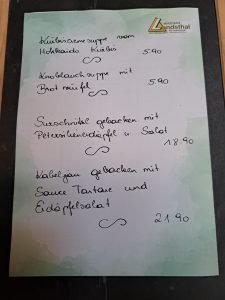 Kürbiscremesuppe vom
Hokkaido Kürbis
5.90
Knoblauchsuppe mit
Brotwürfel
5.90
Surschnitzel gebacken mit
Petersilienerdäpfel u Salat
18.90
Kabeljau gebacken mit
Sauce Tartare und
Erdäpfelsalat
21.90